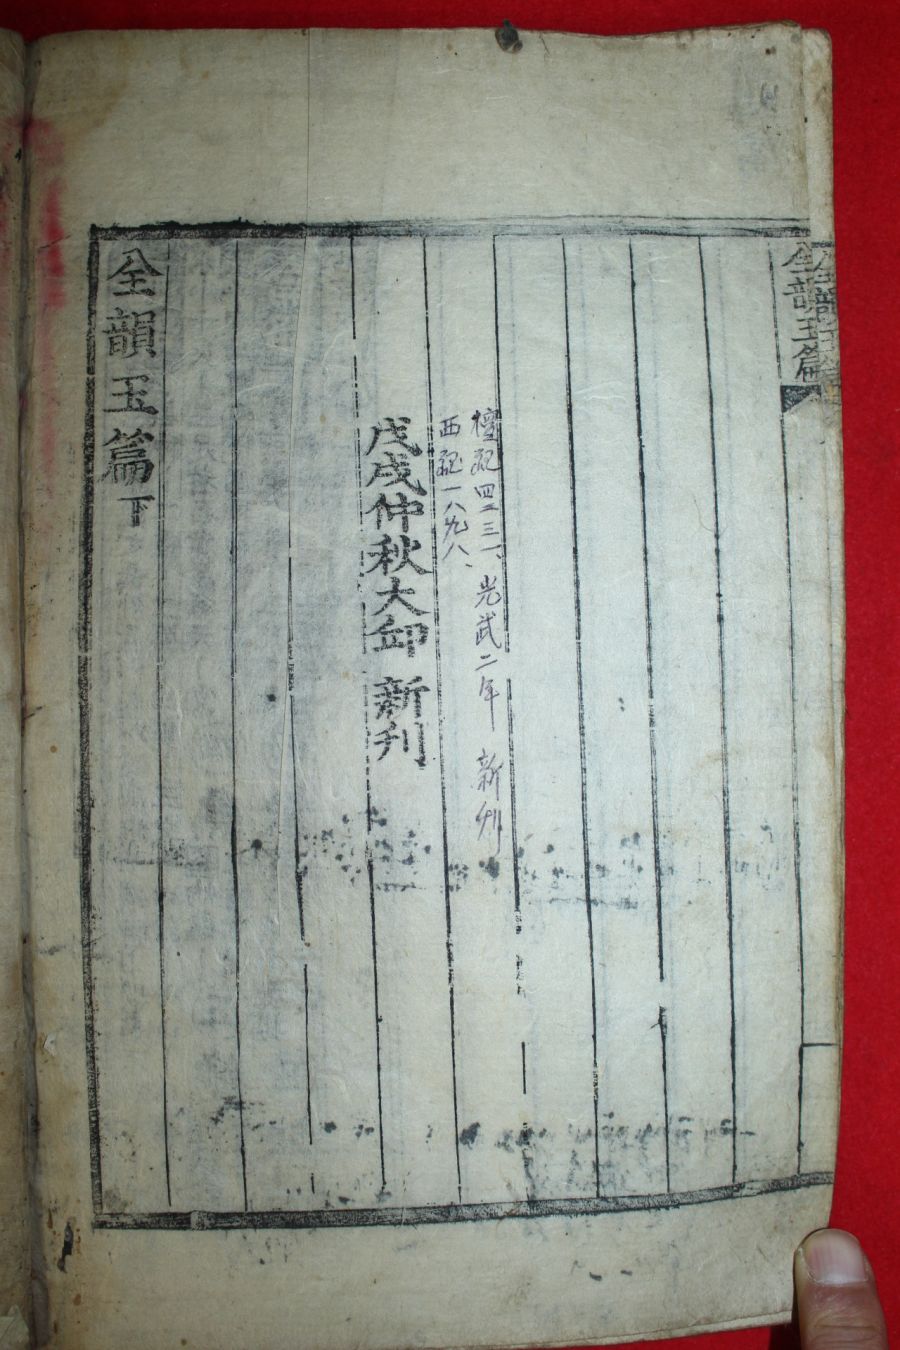 全韻玉篇
檀紀四二三一、光武二年 新刊
西紀一八九八、
戊戌仲秋大邱 新刊
全韻玉篇下